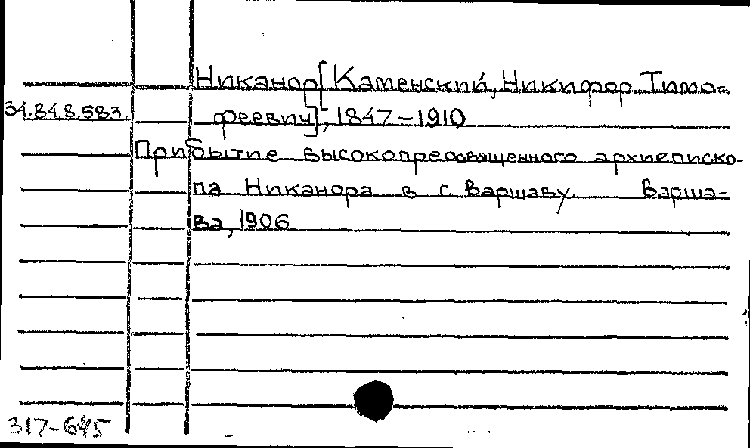 Никанор [Каменский, Никифор Тимо-
34.848.583 феевич], 1847-1910
Прибытие высокопреосвященного архиеписко-
па Никанора в г. Варшаву. Варша-
ва, 1906
317-645